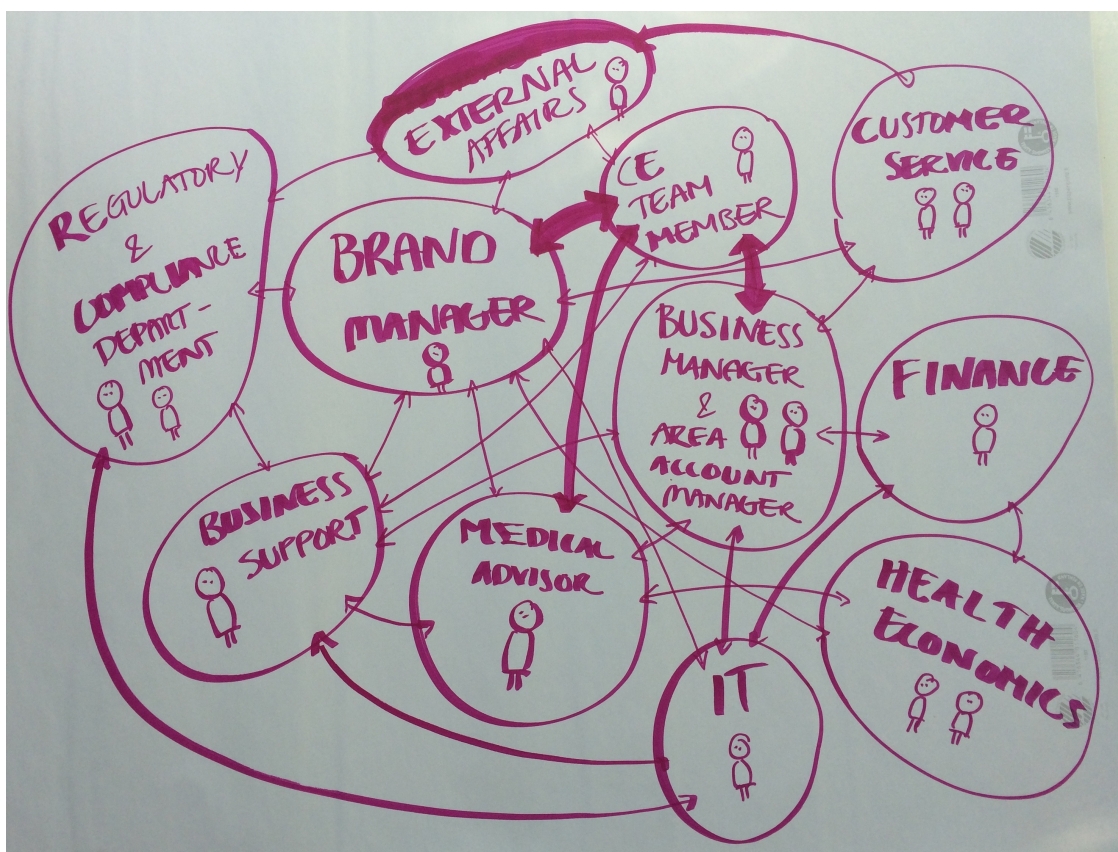 EXTERNAL
AFFAIRS
CUSTOMER
SERVICE
CE
TEAM
MEMBER
REGULATORY
&
COMPLIANCE
DEPART-
MENT
BRAND
MANAGER
BUSINESS
MANAGER
&
AREA
ACCOUNT
MANAGER
FINANCE
BUSINESS
SUPPORT
MEDICAL
ADVISOR
HEALTH
ECONOMICS
IT